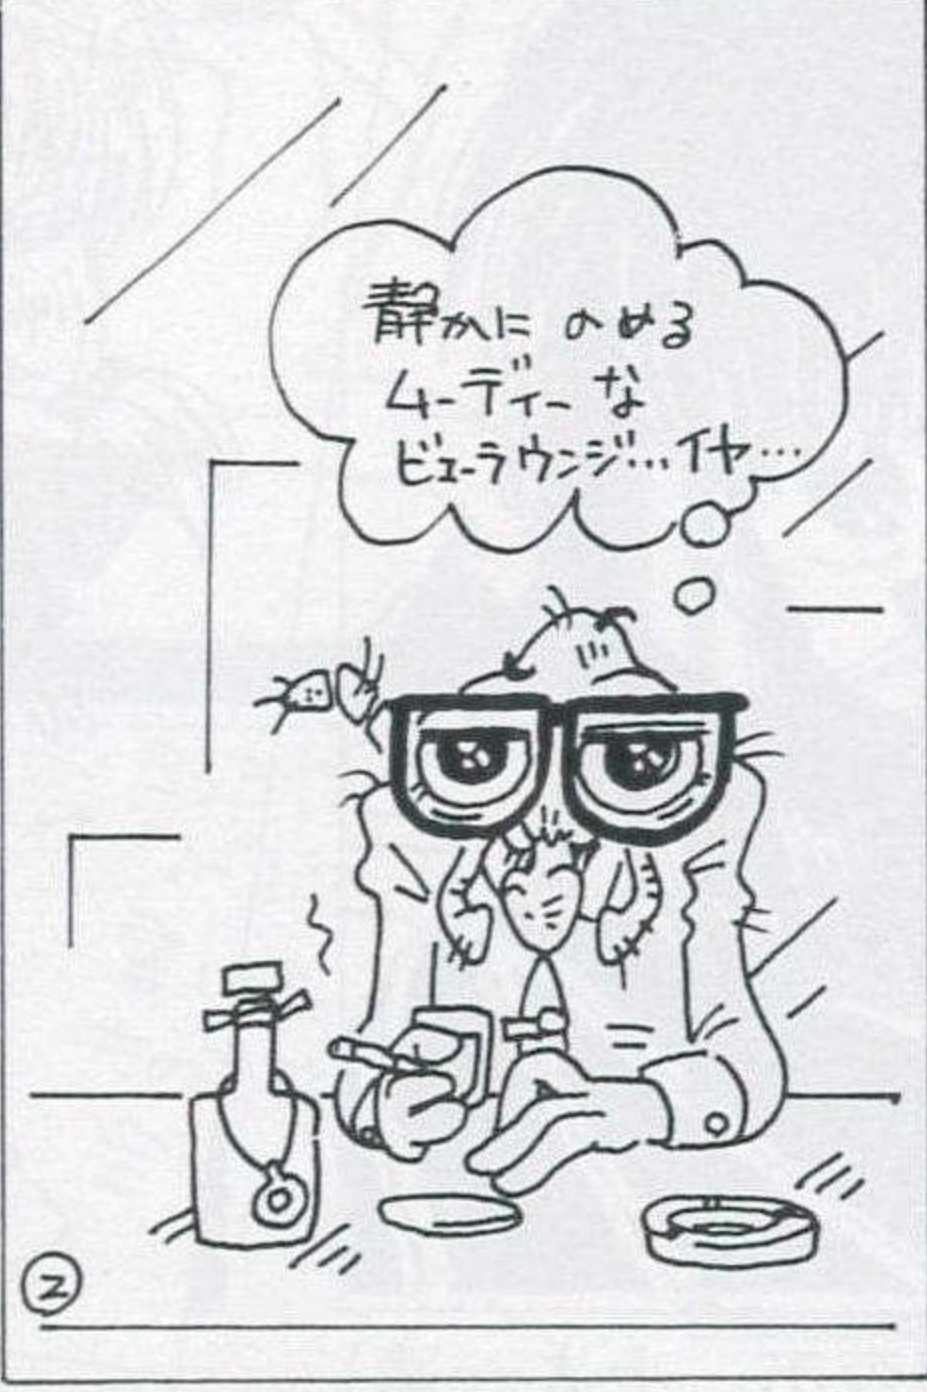 静かに のめる
ムーディー な
ビューラウンジ…イヤ…
②